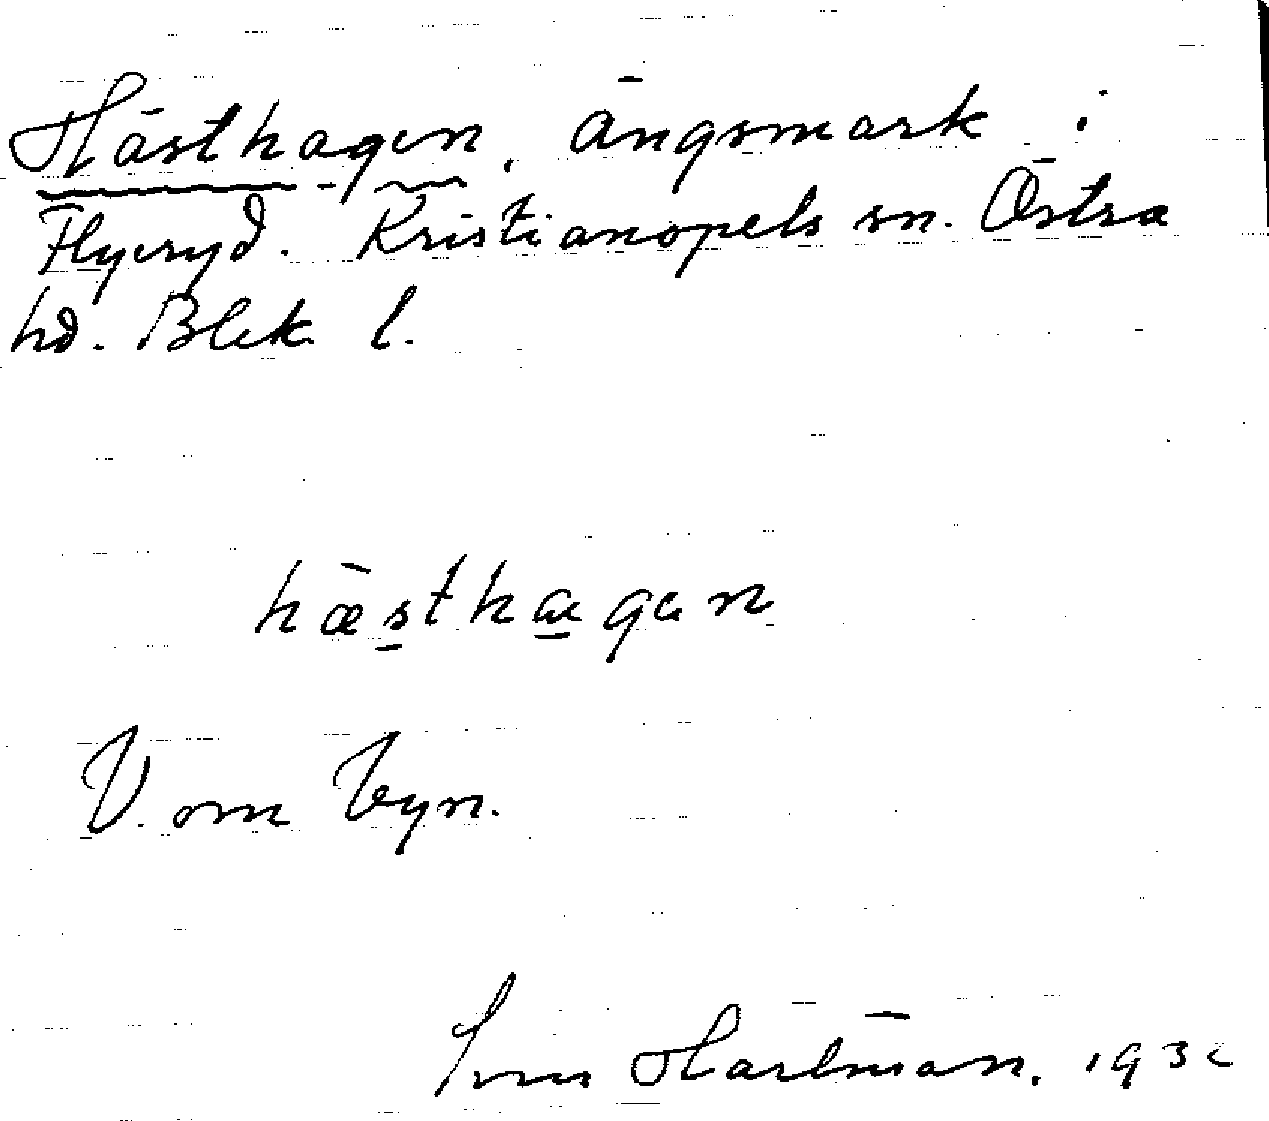 Hästhagen, ängsmark i
Flyeryd. Kristianopels sn. Östra
hd. Blek. l.
hæsthagan
V. om byn.
Sven Hartman. 1932